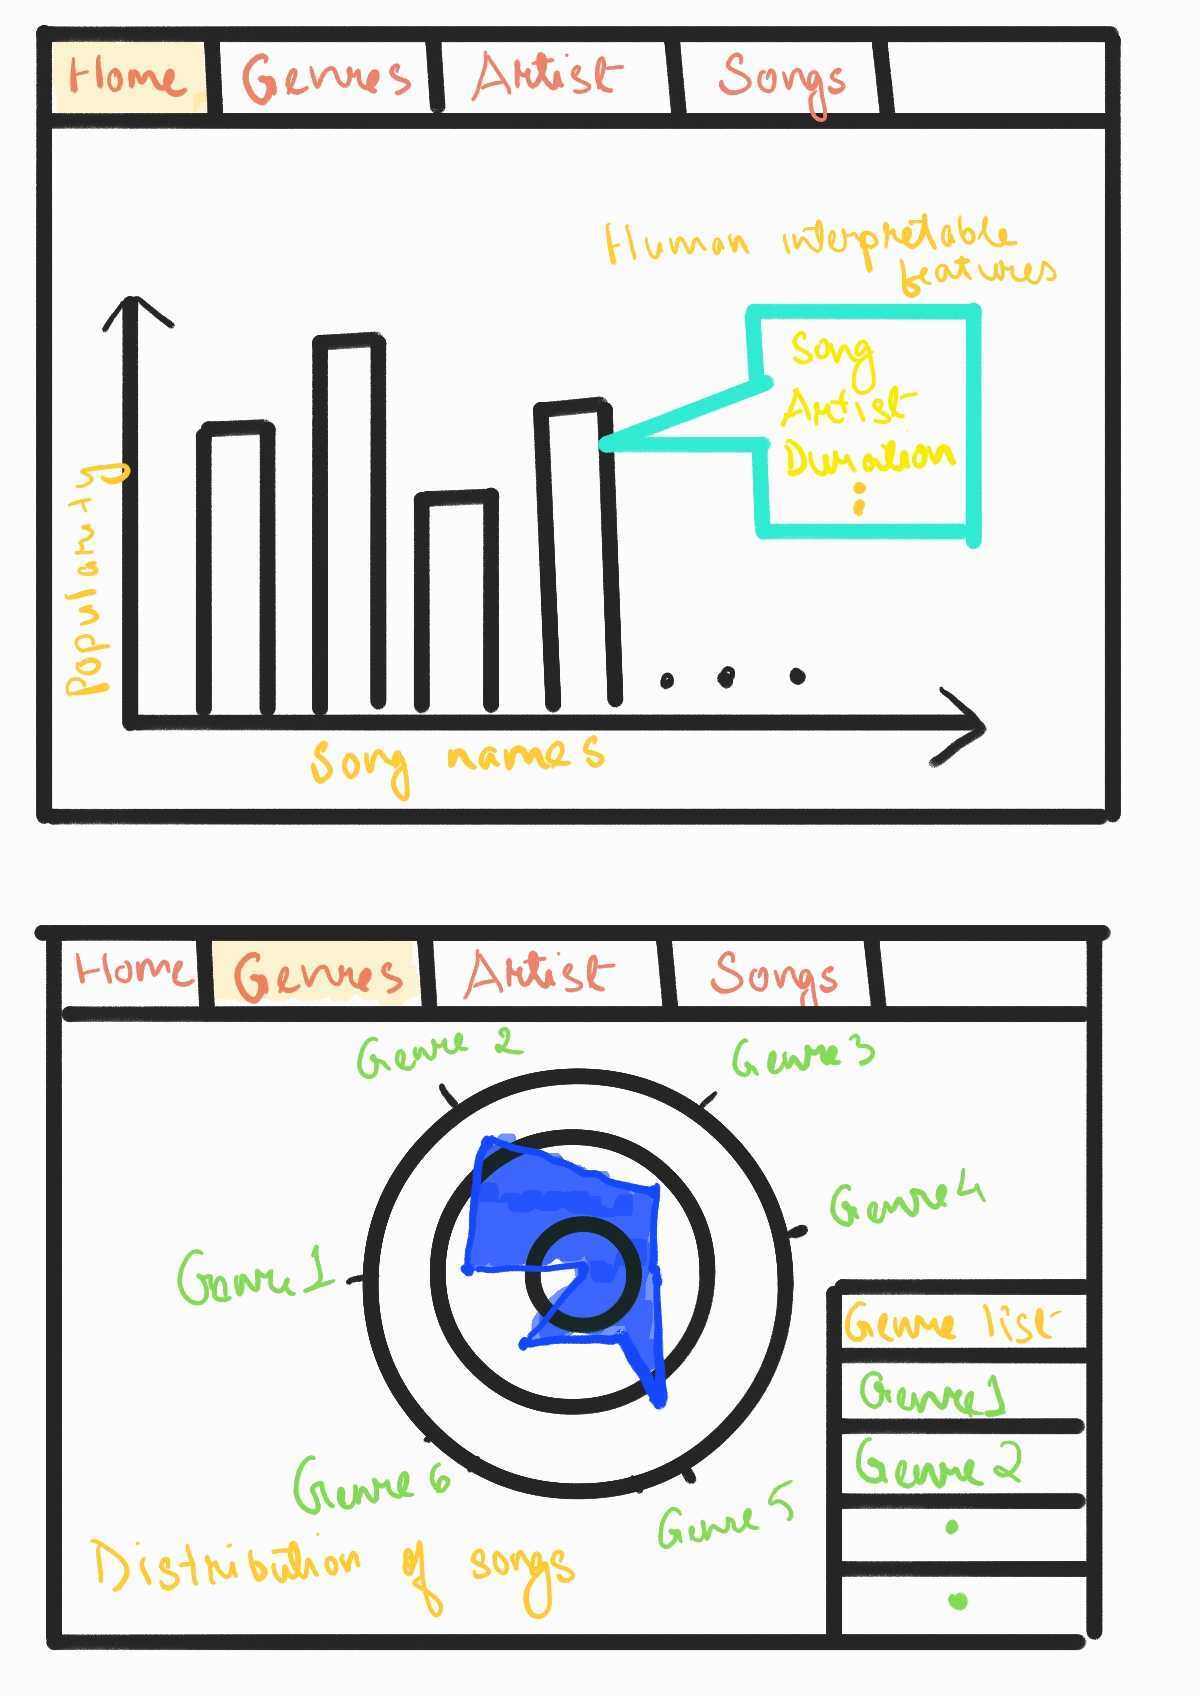 Home Genres Artist Songs
Human interpretable
features
Song
Artist
Duration
Popularity
Song names
Home Genres Artist Songs
Genre 2 Genre 3
Genre 4
Genre 1
Genre list
Genre 1
Genre 2
Genre 6
Genre 5
Distribution of songs